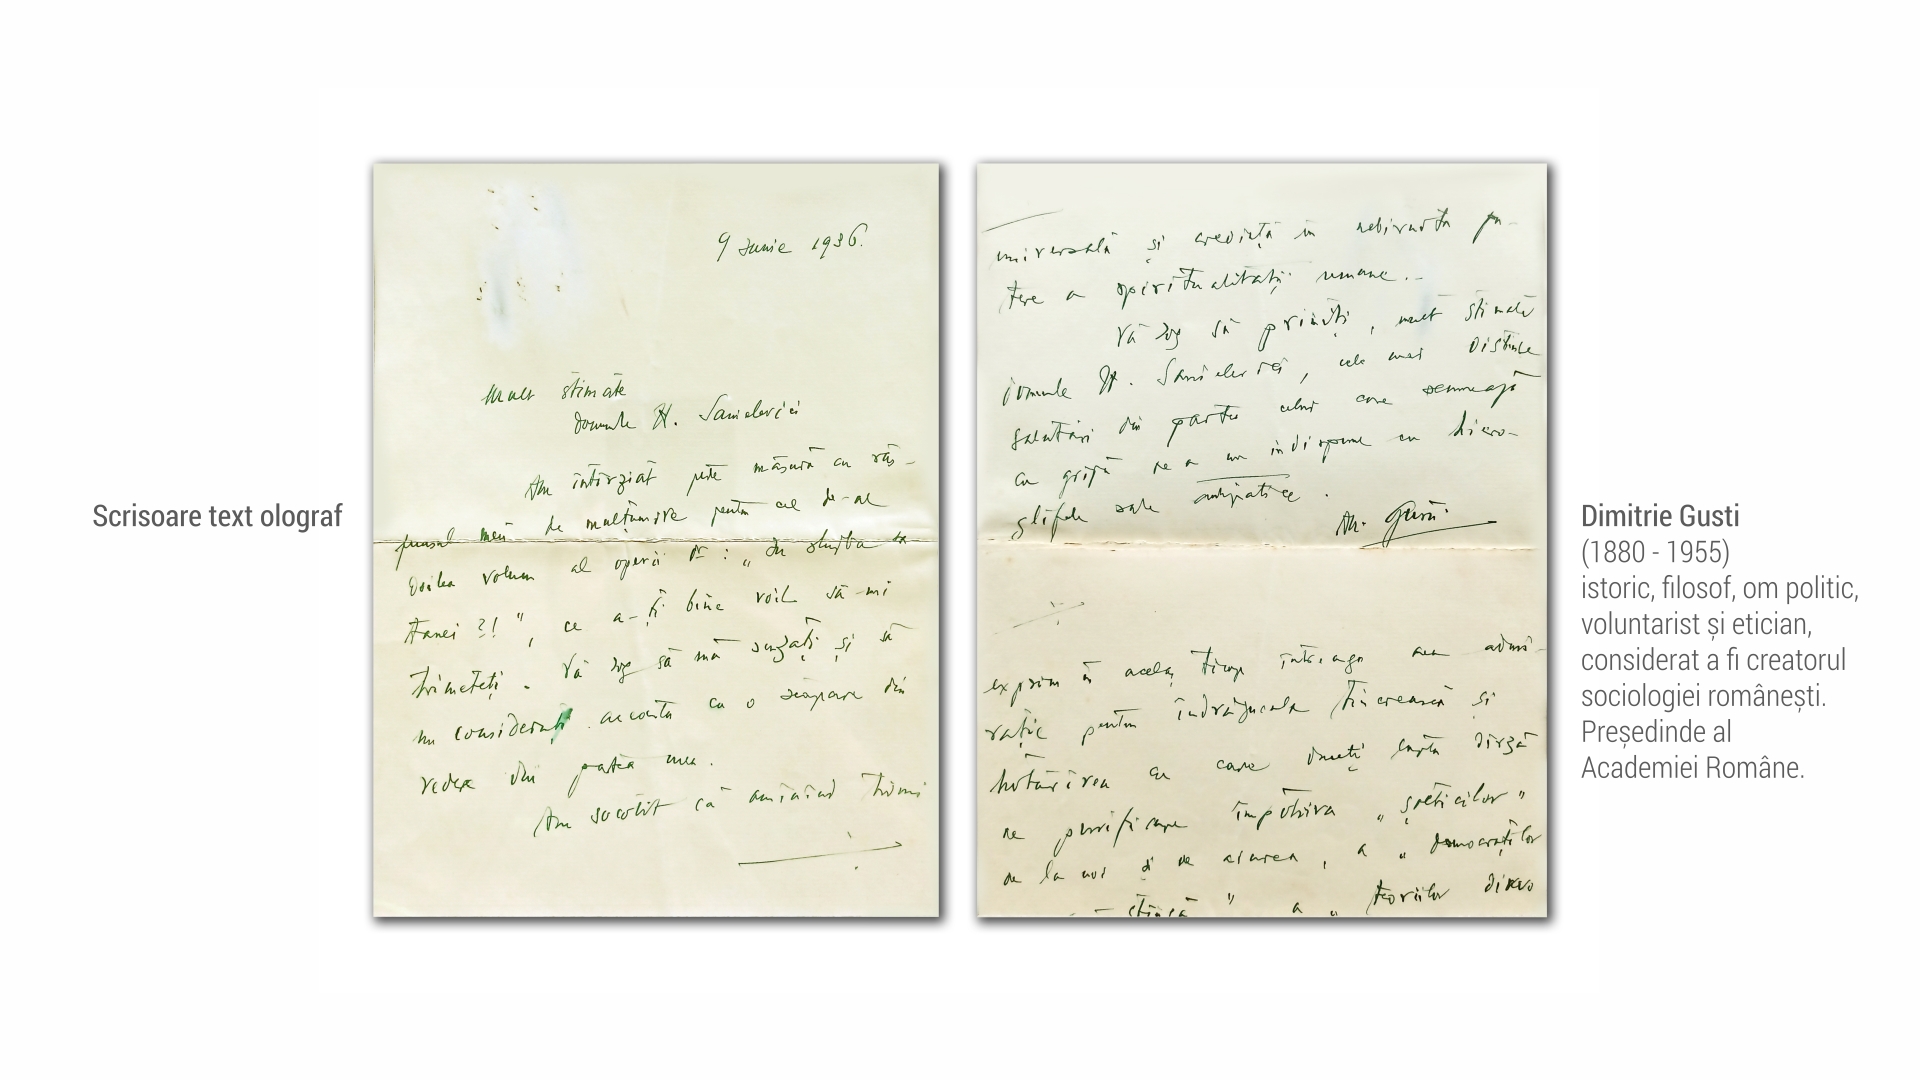 Scrisoare text olograf
9 Iunie 1936.
Mult stimate
domnule H. Sanielevici
Am întârziat peste măsură cu răs-
punsul meu de mulțumire pentru cel de-al
doilea volum al operii Dv : „In slujba Sa-
tanei ?! ", ce a-ți bine voit să-mi
trimeteți. Vă rog să mă scuzați și să
nu considerați aceasta ca o scăpare din
vedere din partea mea.
Am socotit că amînînd
universală și credință în nebiruita pu-
tere a spiritualității umane.-
Vă rog să primiți, mult stimate
domnule H. Sanielevici, cele mai distinse
salutări din partea celui care semnează
cu grijă de a nu indispune cu hiero-
glifele sale antipatice.
D. Gusti
exprim în acelaș timp întreaga mea admi-
rație pentru îndrăzneala tinerească și
hotărîrea cu care duceți lupta dîrză
de purificare împotriva „
de la noi și de aiurea, a „democraților
știință" a „teoriilor
Dimitrie Gusti
(1880 - 1955)
istoric, filosof, om politic,
voluntarist și etician,
considerat a fi creatorul
sociologiei românești.
Președinde al
Academiei Române.